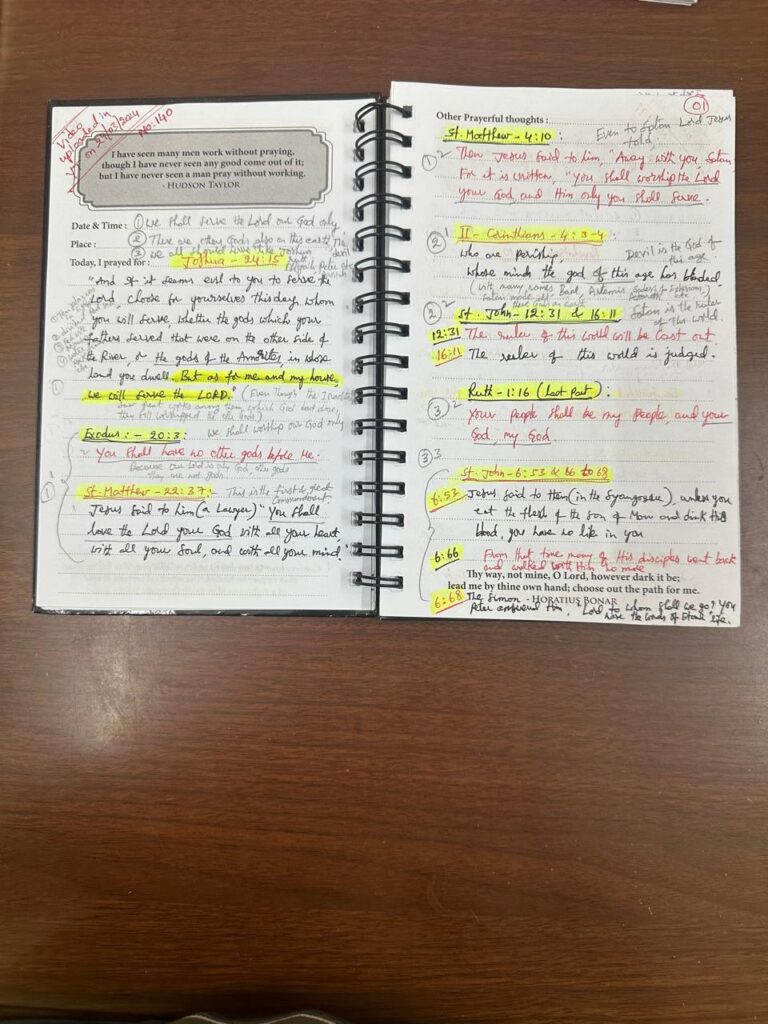 Video
uploaded in
on 27/03/2024
No: 140
I have seen many men work without praying,
though I have never seen any good come out of it;
but I have never seen a man pray without working.
- HUDSON TAYLOR
Date & Time : ① we shall serve the Lord our God only
Place : ② There are other Gods also on this earth,
③ we all should serve like Joshua
Today, I prayed for : Joshua - 24:15
"And if it seems evil to you to serve the
Lord, choose for yourselves this day whom
you will serve, whether the gods which your
fathers served that were on the other side of
the River, or the gods of the Amorites, in whose
land you dwell. But as for me and my house,
we will serve the LORD." (Even though the
great works among them which God had done,
they still worshipped the
Exodus : - 20:3 : we shall worship our God only
You shall have no other gods before Me.
because our Lord is only God, other gods
They are not gods.
St. Matthew - 22:37 : This is the first & great
Commandment.
Jesus said to him (a Lawyer) "You shall
love the Lord your God with all your heart,
with all your Soul, and with all your mind.
01
Other Prayerful thoughts :
St. Matthew - 4:10 : Even to Satan Lord Jesus
told
① 2 Then Jesus said to him, "Away with you Satan
For it is written, "You shall worship the Lord
your God, and Him only you shall serve.
② 1 II - Corinthians - 4 : 3-4 :
who are perishing, Devil is the God of
this age
whose minds the god of this age has blinded
(with many names Baal, Artemis
② 2 St. John - 12:31 & 16:11 Satan is the ruler
of this world.
12:31 The ruler of this world will be cast out.
16:11 The ruler of this world is judged.
Ruth - 1:16 (Last Part) :
③ 2 Your people shall be my People, and your
God, my God.
③ 3
St. John - 6: 53 & 66 to 68
6:53 Jesus said to them (in the Synangogue), unless you
eat the flesh of the Son of Man and drink His
blood, you have no life in you
6:66 From that time many of His disciples went back
and walked with Him no more
Thy way, not mine, O Lord, however dark it be;
lead me by thine own hand; choose out the path for me.
- HORATIUS BONAR
6:68 The Simon
Peter answered Him, Lord to whom shall we go? You
have the words of Eternal life.